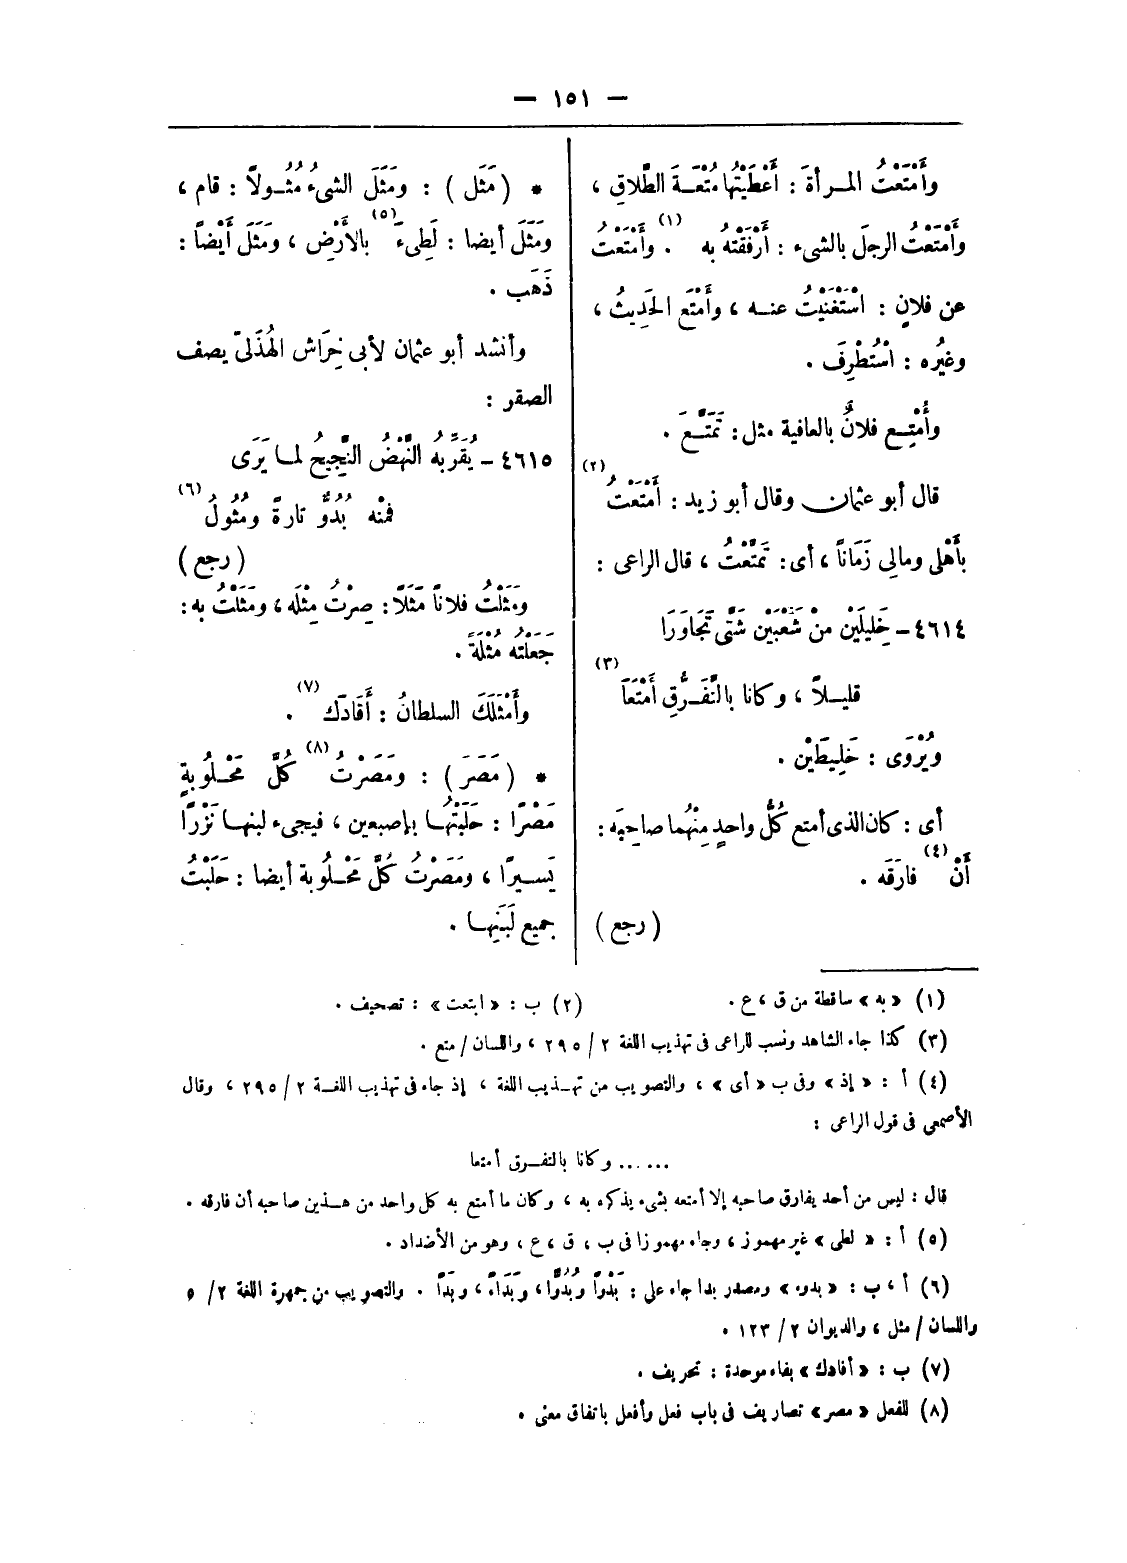 — ١٥١ —
وأَمْتَعْتُ المـرأةَ : أعْطَيْتُها مُتْعَـةَ الطَّلاقِ ،
وأَمْتَعْتُ الرجلَ بالشىء : أَرْفَقْتُهُ به (١) . وأَمْتَعْتُ
عن فلانٍ : اسْتَغْنَيْتُ عنـه ، وأَمْتَع الحَدِيثُ ،
وغيْرُه : اسْتُطْرِفَ .
وأُمْتِـع فلانٌ بالعافية مثل : تَمَتَّـعَ .
قال أبو عثمان وقال أبو زيد : أَمْتَعْتُ (٢)
بأَهْلى ومالِى زَمَاناً ، أى : تَمَتَّعْتُ ، قال الراعى :
٤٦١٤ – خَلِيلَيْنِ منْ شَعْبَيْنِ شَتَّى تَجَاوَرَا
قليـلاً ، وكانا بالتَّفَـرُّقِ أَمْتَعَا (٣)
ويُرْوَى : خَلِيطَيْنِ .
أى : كان الذى أمتع كُلُّ واحدٍ مِنْهُما صاحِبَه :
أَنْ (٤) فارَقَه .
( رجع )
* ( مَثَل ) : ومَثَلَ الشىءُ مُثُـولاً : قام ،
ومَثَلَ أيضا : لَطِىءَ (٥) بالأَرْضِ ، ومَثَلَ أَيْضاً :
ذَهَب .
وأنشد أبو عثمان لأبى خِرَاش الهُذَلىّ يصف
الصقر :
٤٦١٥ – يُقَرِّبُه النَّهْضُ النَّجِيحُ لمـا يَرَى
فمنْه بُدُوٌّ تارةً ومُثُولُ (٦)
( رجع )
ومَثَلْتُ فلاناً مَثَلاً : صِرْتُ مِثْلَه ، ومَثَلْتُ به :
جَعَلْتُه مُثْلَةً .
وأَمْثَلَكَ السلطانُ : أَقَادَك (٧) .
* ( مَصَرَ ) : ومَصَرْتُ (٨) كُلَّ مَحْـلُوبةٍ
مَصْرًا : حَلَبْتُهـا بإصبعين ، فيجىء لبنهـا نَزْرًا
يَسـيرًا ، ومَصَرْتُ كُلَّ مَحْـلُوبة أيضا : حَلَبْتُ
جميع لَبَنِهـا .
(١) « به » ساقطة من ق ، ع . (٢) ب : « ابتعت » : تصحيف .
(٣) كذا جاء الشاهد ونسب للراعى فى تهذيب اللغة ٢ / ٢٩٥ ، واللسان / متع .
(٤) أ : « إذ » وفى ب « أى » ، والتصويب من تهـذيب اللغة ، إذ جاء فى تهذيب اللغـة ٢ / ٢٩٥ ، وقال
الأصمعى فى قول الراعى :
...... وكانا بالتفـرق أمتعا
قال : ليس من أحد يفارق صاحبه إلا أمتعه بشىء يذكره به ، وكان ما أمتع به كل واحد من هـذين صاحبه أن فارقه .
(٥) أ : « لطى » غير مهموز ، وجاء مهموزا فى ب ، ق ، ع ، وهو من الأضداد .
(٦) أ ، ب : « بدوء » ومصدر بدا جاء على : بَدْواً وبُدُوًّا ، وبَدَاءً ، وبَدًا . والتصويب من جمهرة اللغة ٢ / ٥
واللسان / مثل ، والديوان ٢ / ١٢٣ .
(٧) ب : « أفادك » بفاء موحدة : تحريف .
(٨) للفعل « مصر » تصاريف فى باب فعل وأفعل باتفاق معنى .